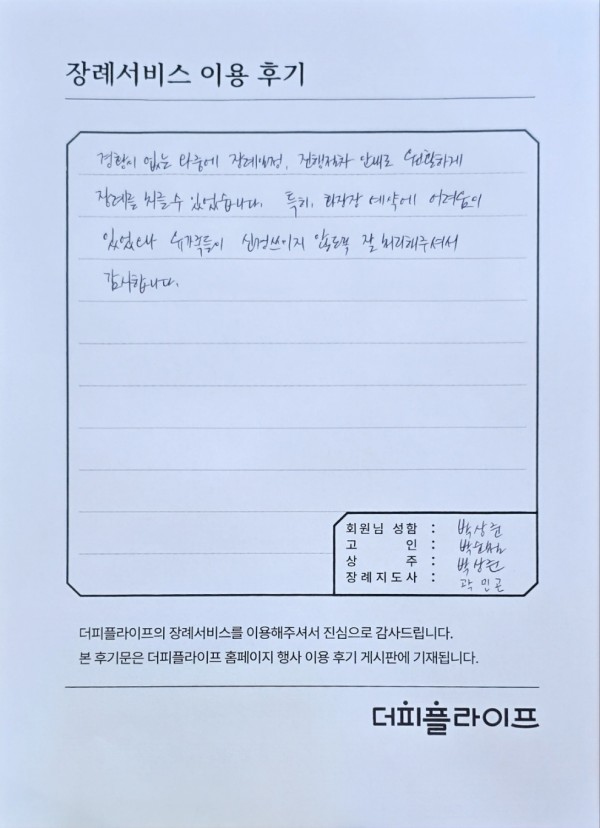 장례서비스 이용 후기
경험이 없는 와중에 장례일정, 진행절차 안내로 원활하게
장례를 치를 수 있었습니다. 특히, 화장장 예약에 어려움이
있었으나 유가족들이 신경쓰이지 않도록 잘 처리해주셔서
감사합니다.
회원님 성함 : 박상현
고 인 :
상 주 : 박상현
장례지도사 : 곽민곤
더피플라이프의 장례서비스를 이용해주셔서 진심으로 감사드립니다.
본 후기문은 더피플라이프 홈페이지 행사 이용 후기 게시판에 기재됩니다.
더피플라이프